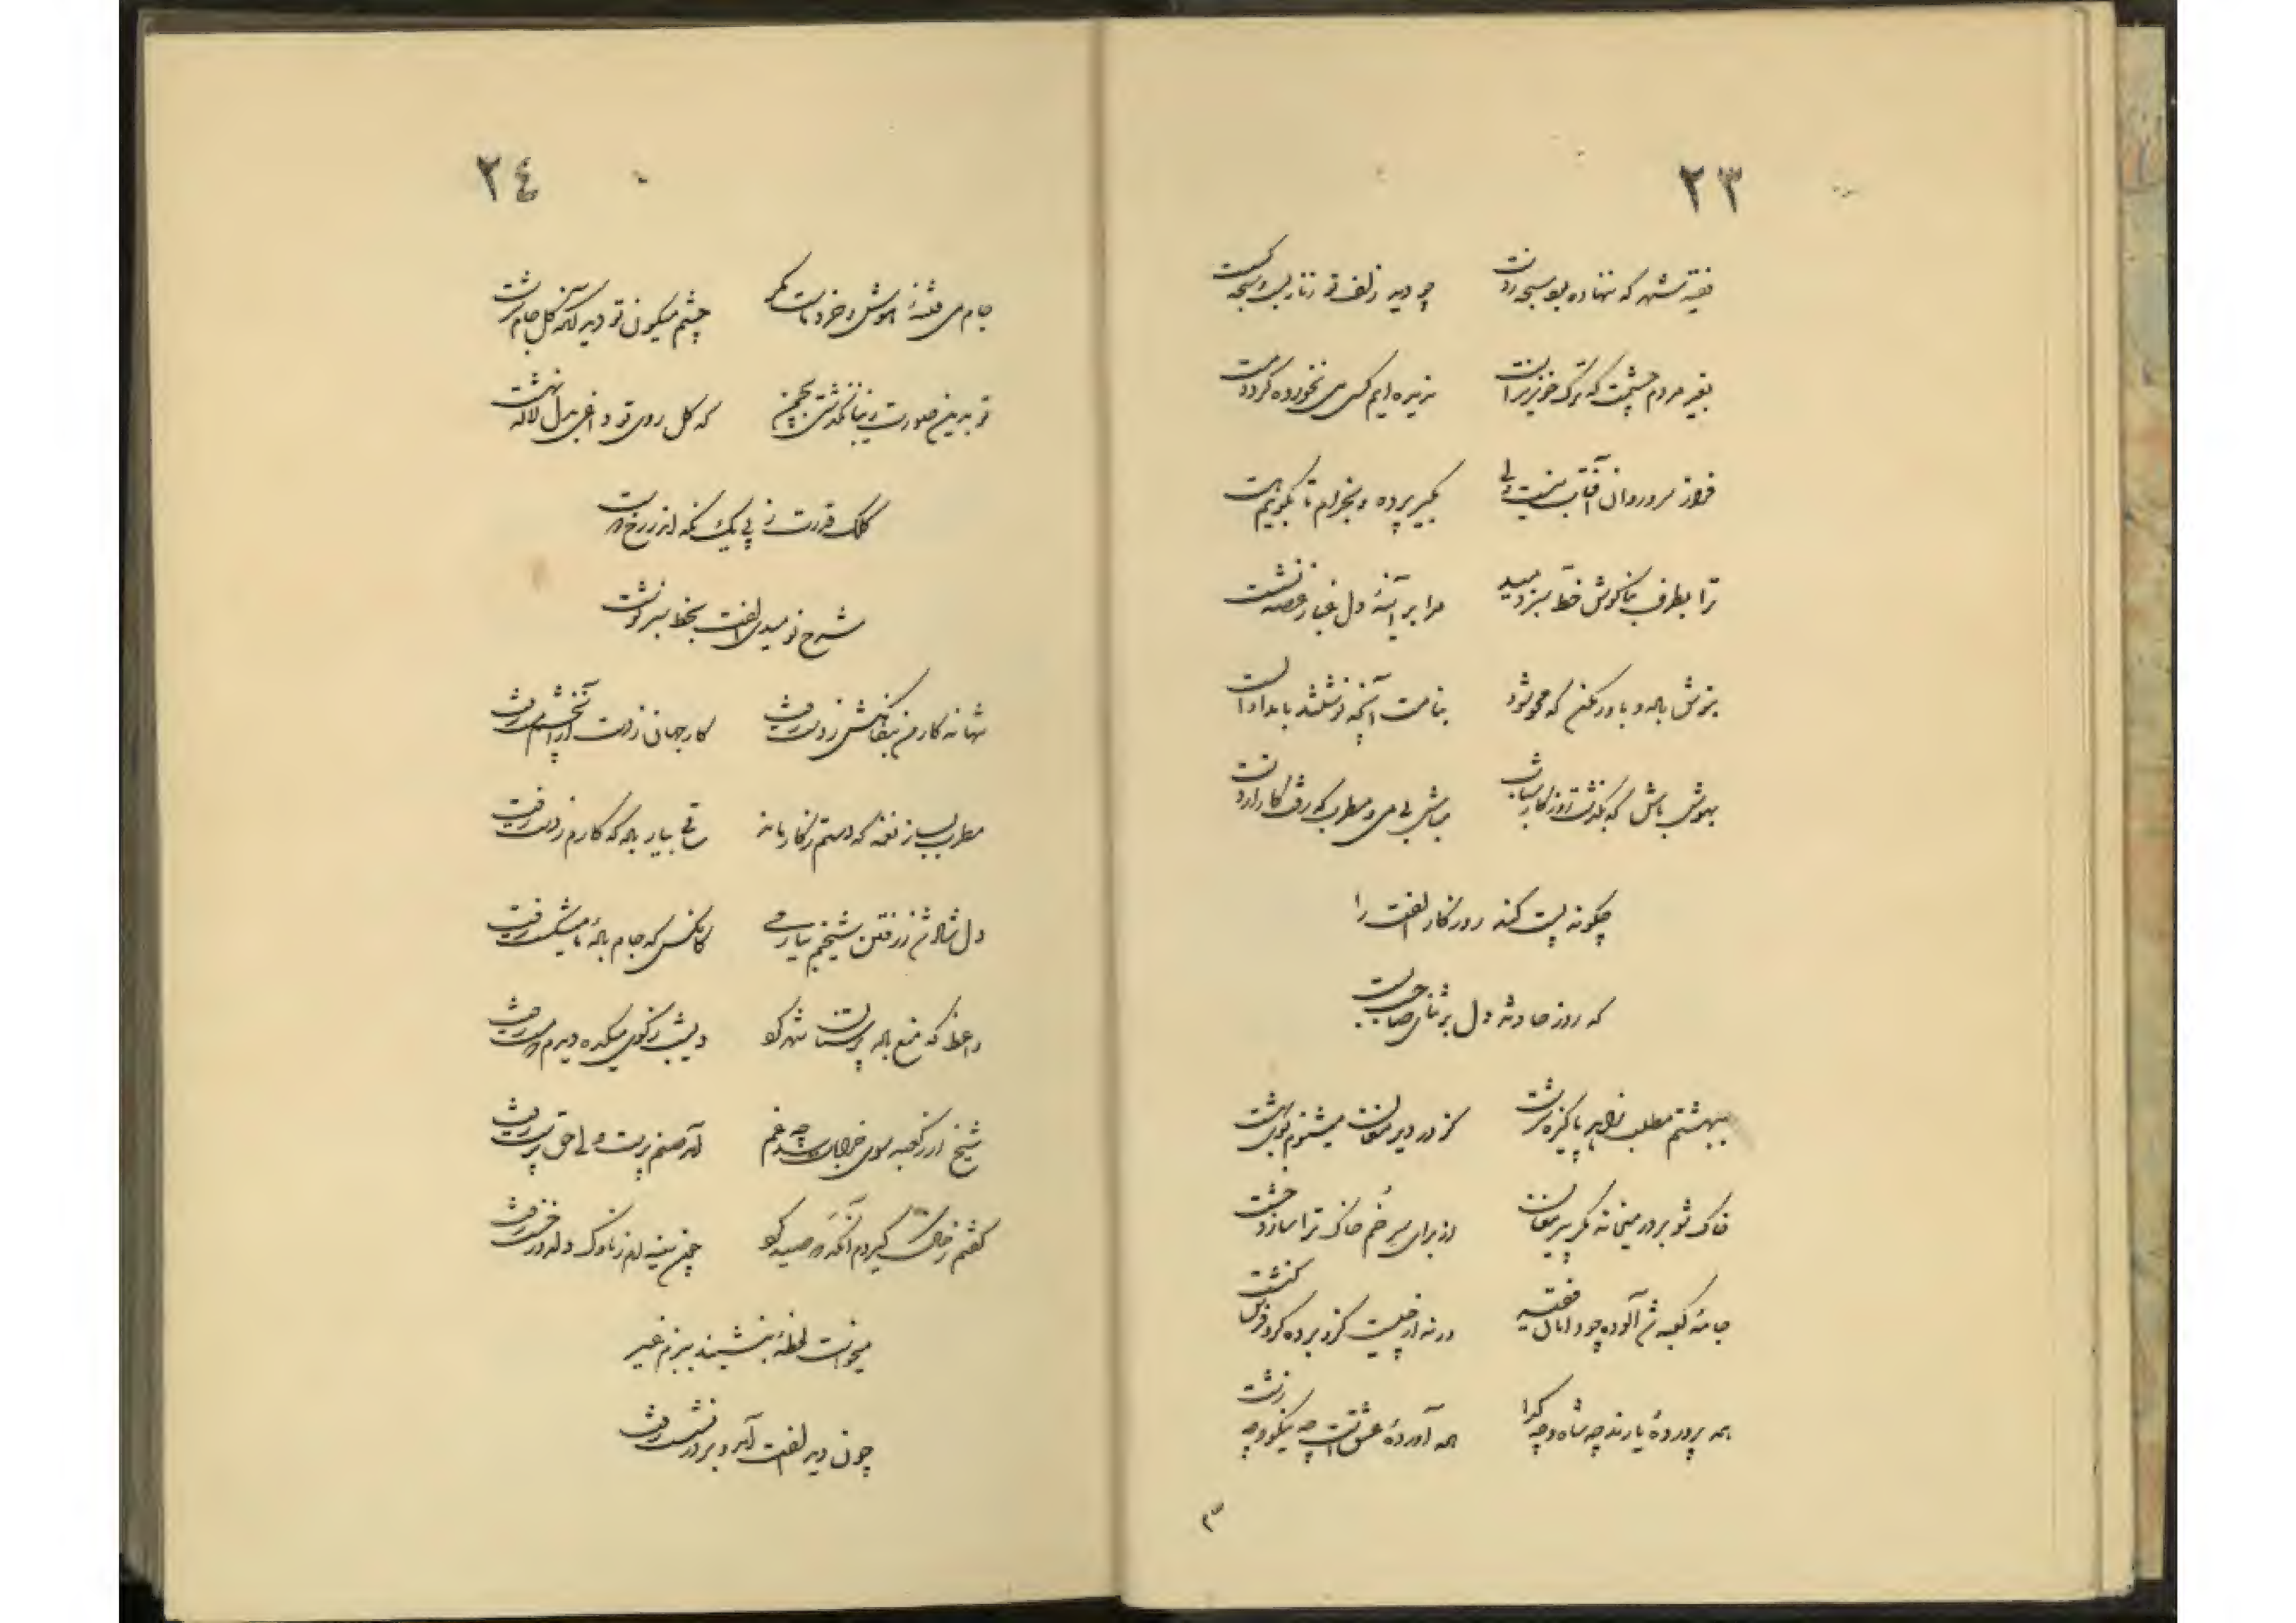 ۲۳
فقیه شهر که ننهاده بود سبحه ز دست چو دید زلف تو زنار بست و سبحه گسست
بغیر مردم چشمت که ترک خونریز است ندیده‌ایم کسی می نخورده گردد مست
فراز سرو روان آفتاب نیست ولی بگیر پرده و بخرام تا بگویم هست
ترا بطرف بناگوش خط سبز دمید مرا بر آینهٔ دل غبار غصه نشست
بنوش باده و باور مکن که محو شود بنامت آنچه نوشتند بامداد الست
بهوش باش که بگذشت روزگار شباب مباش بی می و مطرب که رفت کار از دست
چگونه پست کند روزگار الفت را
که روز حادثه دل بر ثنای صاحب بست
ببهشتم مطلب زاهد پاکیزه سرشت کز در دیر مغان میشنوم بوی بهشت
خاک شو بر در میخانه مگر پیر مغان از برای سر خم خاک ترا سازد خشت
جامهٔ کعبه شد آلوده چو دامان فقیه ورنه از چیست کزو پرده کرو کنشت
همه پروردهٔ یارند چه شاه و چه گدا همه آوردهٔ عشق است چه نیکو و چه زشت
۳
۲٤
جام می فتنهٔ هوش و خرد ماست مگر چشم میگون تو دید آنکه گل جام سرشت
تو بدین صورت زیبا نگذشتی بچمن که گل روی تو داغی بدل لاله نهشت
کلک قدرت ز پی یک نگه از زرخ
شرح نومیدی الفت بخط سبز نوشت
تنها نه کار من بنگاهش ز دست رفت کار جهان ز دست از آن چشم مست رفت
مطرب بساز نغمه که دستم ز کار ماند ساقی بیار باده که کارم ز دست رفت
دل شاد شد ز رفتن شیخم بیار می کانکس که جام بادهٔ ما میشکست رفت
واعظ که منع باده پرستان شهر گو دیشب ز کوی میکده دیدم مست رفت
شیخ ار ز کعبه سوی خرابات شد چه غم آمد صنم پرست ولی حق پرست رفت
گفتم ز خاک گیردم آنکه صید گو چون سینه‌ام ز ناوک دلدوز خست رفت
میخواست لحظهٔ بنشیند ببزم غیر
چون دید الفت آمد و بر در نشست رفت